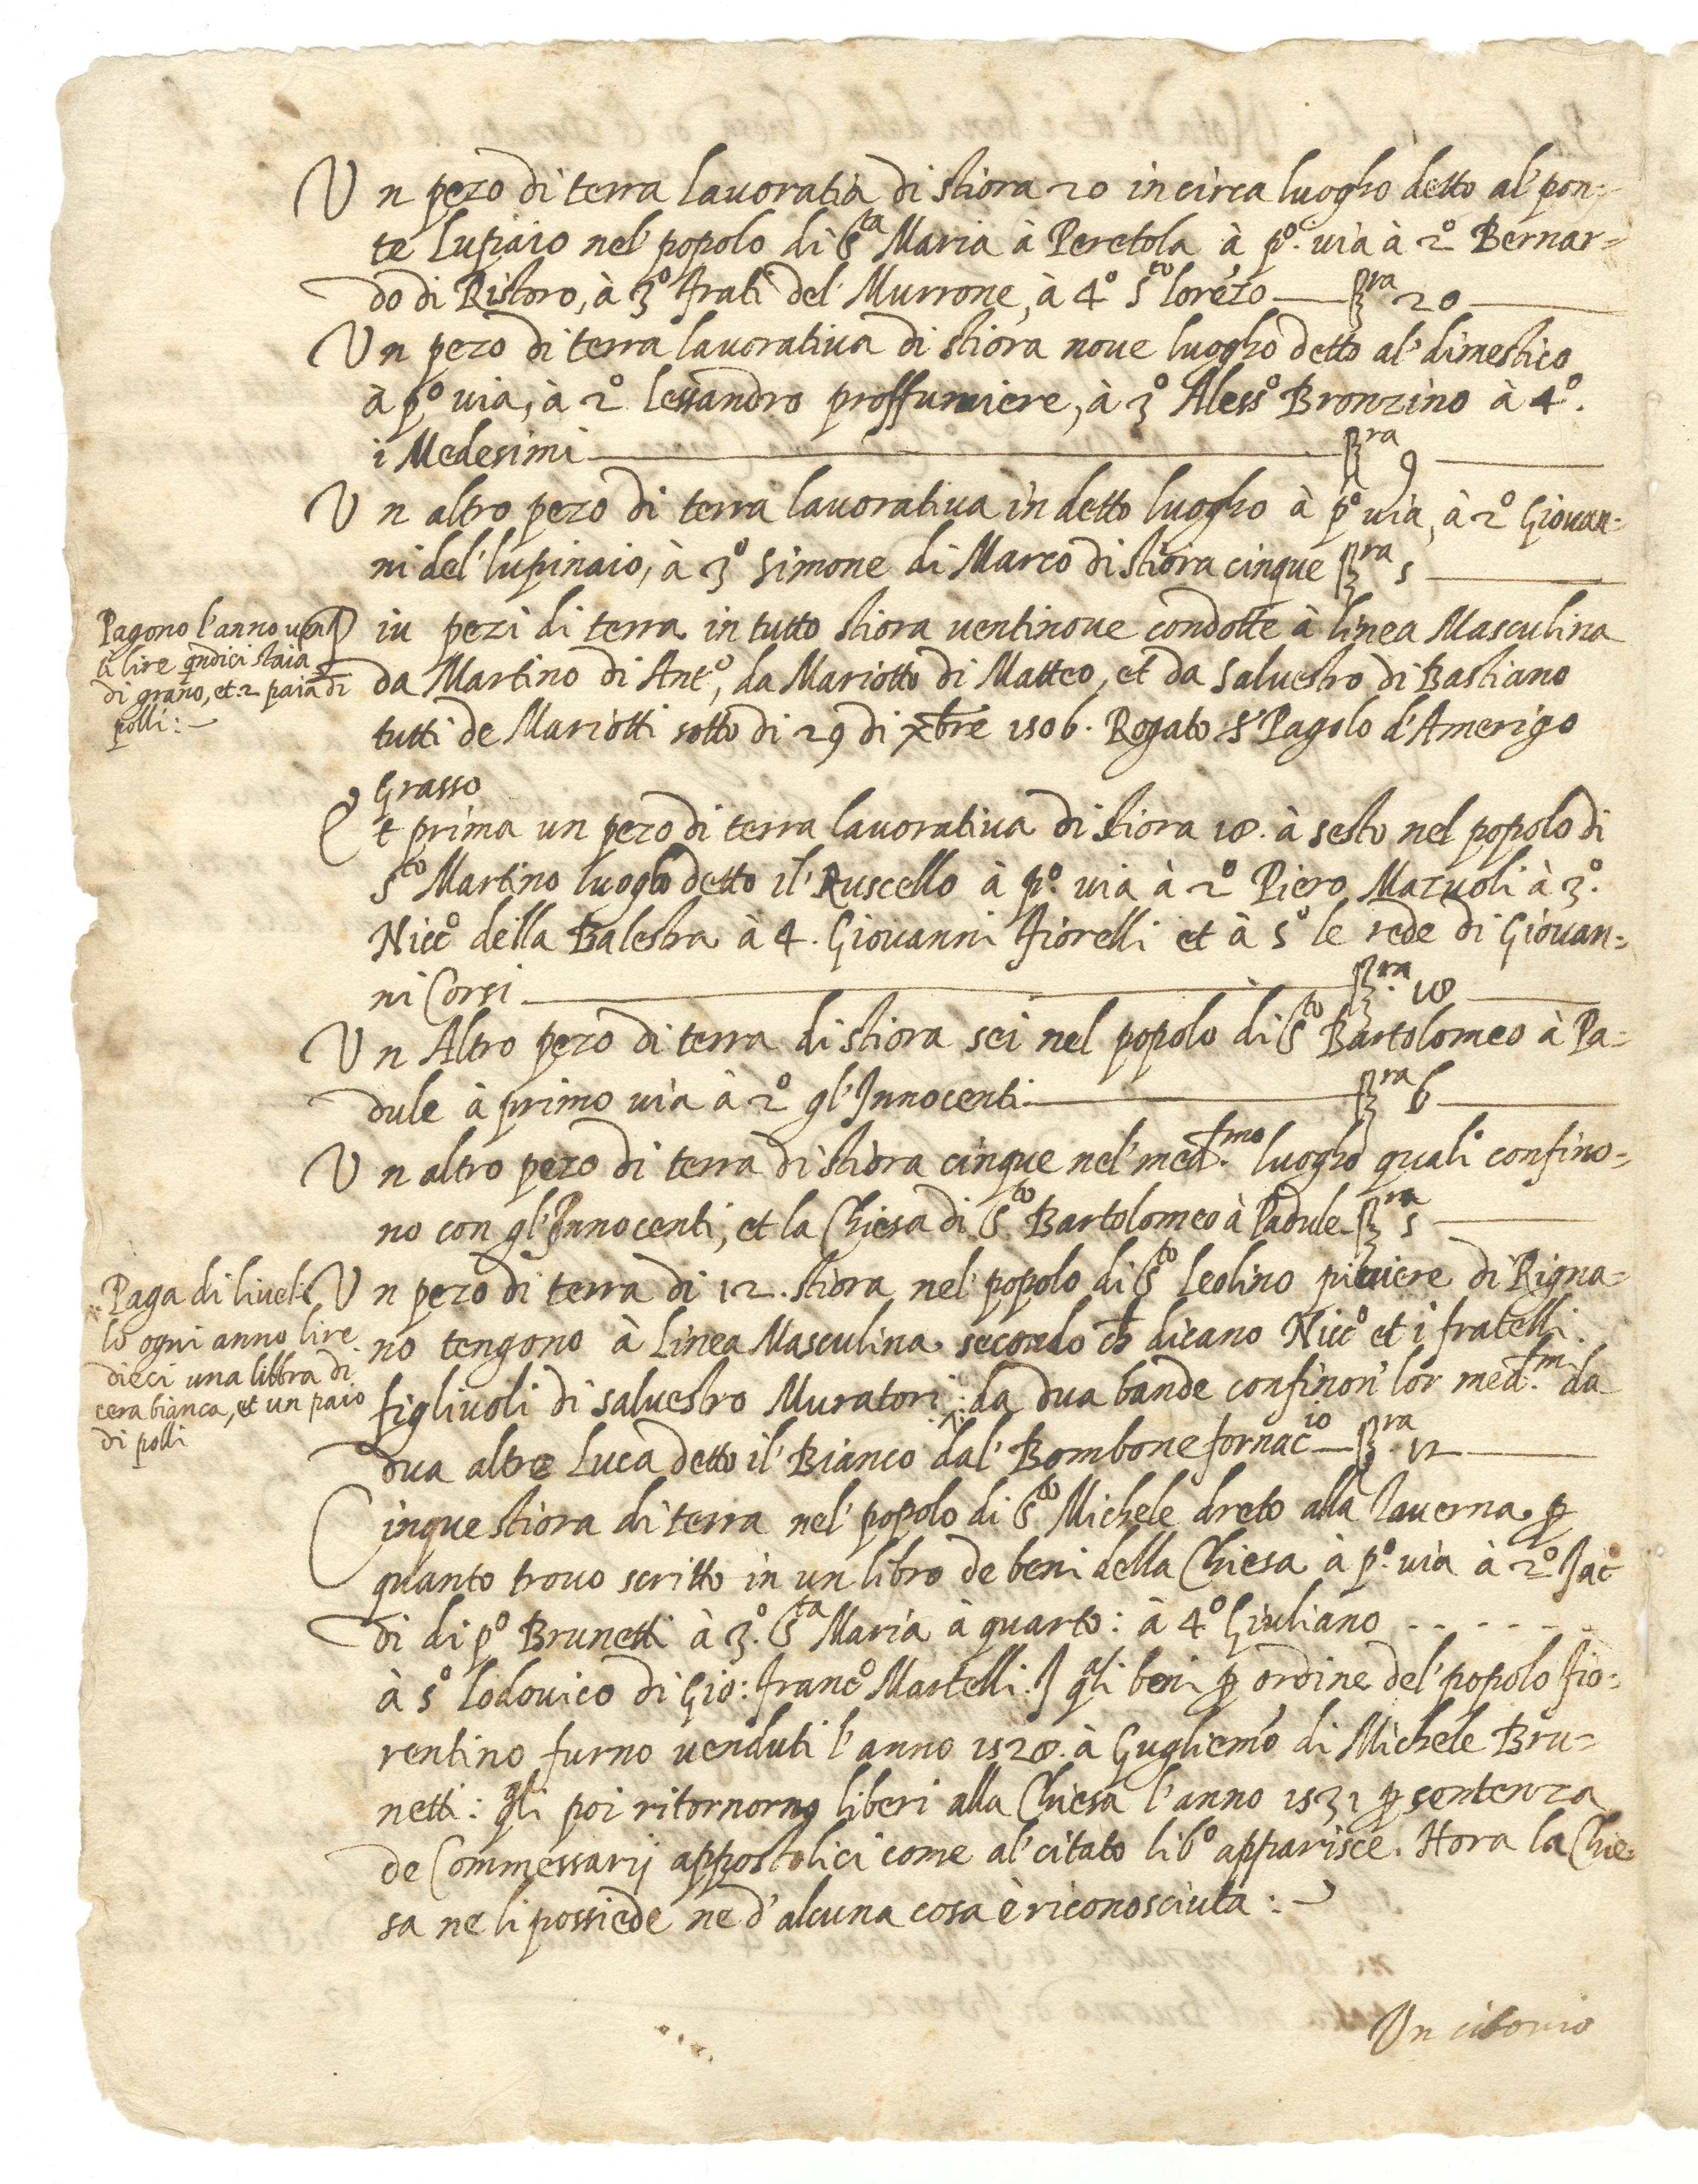 Un pezo di terra lavoratia di stiora 20 in circa luogho detto al' pon=
te Lupiaio nel' popolo di S.ta Maria à Peretola à p.º via à 2º Bernar=
do di Ristoro, à 3º frati del' Murrone, à 4º S.to lorēzo — st.ra 20 —
Un pezo di terra lavorativa di stiora nove luogho detto al' dimestico
à pº via, à 2º lessandro proffumiere, à 3º Alessº Bronzino à 4º.
i Medesimi — st.ra 9 —
Un altro pezo di terra lavorativa in detto luogho à pº via, à 2º Giovan=
ni del' lupinaio, à 3º Simone di Marco di stiora cinque st.ra 5 —
Pagono l'anno
lire qndici staia
di grano, et 2 paia di
polli:
iu pezi di terra in tutto stiora ventinove condotte à linea Masculina
da Martino di Antº, da Mariotto di Matteo, et da Salvestro di Bastiano
tutti de Mariotti sotto di 29 di xbre 1506. Rogato Sr Pagolo d'Amerigo
Grasso
Et prima un pezo di terra lavorativa di stiora 18. à sesto nel popolo di
S.to Martino luogho detto il' Ruscello à pº. via à 2º Piero Mazuoli à 3º.
Niccº della Balestra à 4. Giovanni fiorelli et à 5º le rede di Giovan=
ni Corsi — st.ra 18 —
Un Altro pezo di terra di stiora sei nel popolo di S.to Bartolomeo à Pa=
dule à primo via à 2º gl'Innocenti — st.ra 6 —
Un altro pezo di terra di stiora cinque nel' med.smo luogho quali confino=
no con gl'Innocenti, et la Chiesa di S.to Bartolomeo à Padule st.ra 5 —
Paga di livel=
lo ogni anno lire
dieci una libbra di
cera bianca, et un paio
di polli
Un pezo di terra di 12. stiora nel' popolo di S.to Leolino piviere di Rigna=
no tengono à Linea Masculina secondo ch dicano Niccº et i fratelli
figlivoli di salvestro Muratori: da dua bande confinon' lor med.smi da
dua altre Luca detto il' Bianco dal' Bombone fornac.io — st.ra 12 —
Cinque stiora di terra nel' popolo di S.to Michele dreto alla Taverna p
quanto trovo scritto in un libro de beni della Chiesa à pº. via à 2º Jacº
di di pº Brunetti à 3º. S.ta Maria à quarto: à 4º Giuliano . . . . . .
à 5º Lodovico di Gio: Francº Martelli. I qli beni p ordine del' popolo fio=
rentino furno venduti l'anno 1528. à Gugliemo di Michele Bru=
netti: qli poi ritornorno liberi alla Chiesa l'anno 1531 p sentenza
de Commessarij appostolici come al' citato libº apparisce. Hora la Chie=
sa ne li possiede ne d'alcuna cosa è riconosciuta:
Un